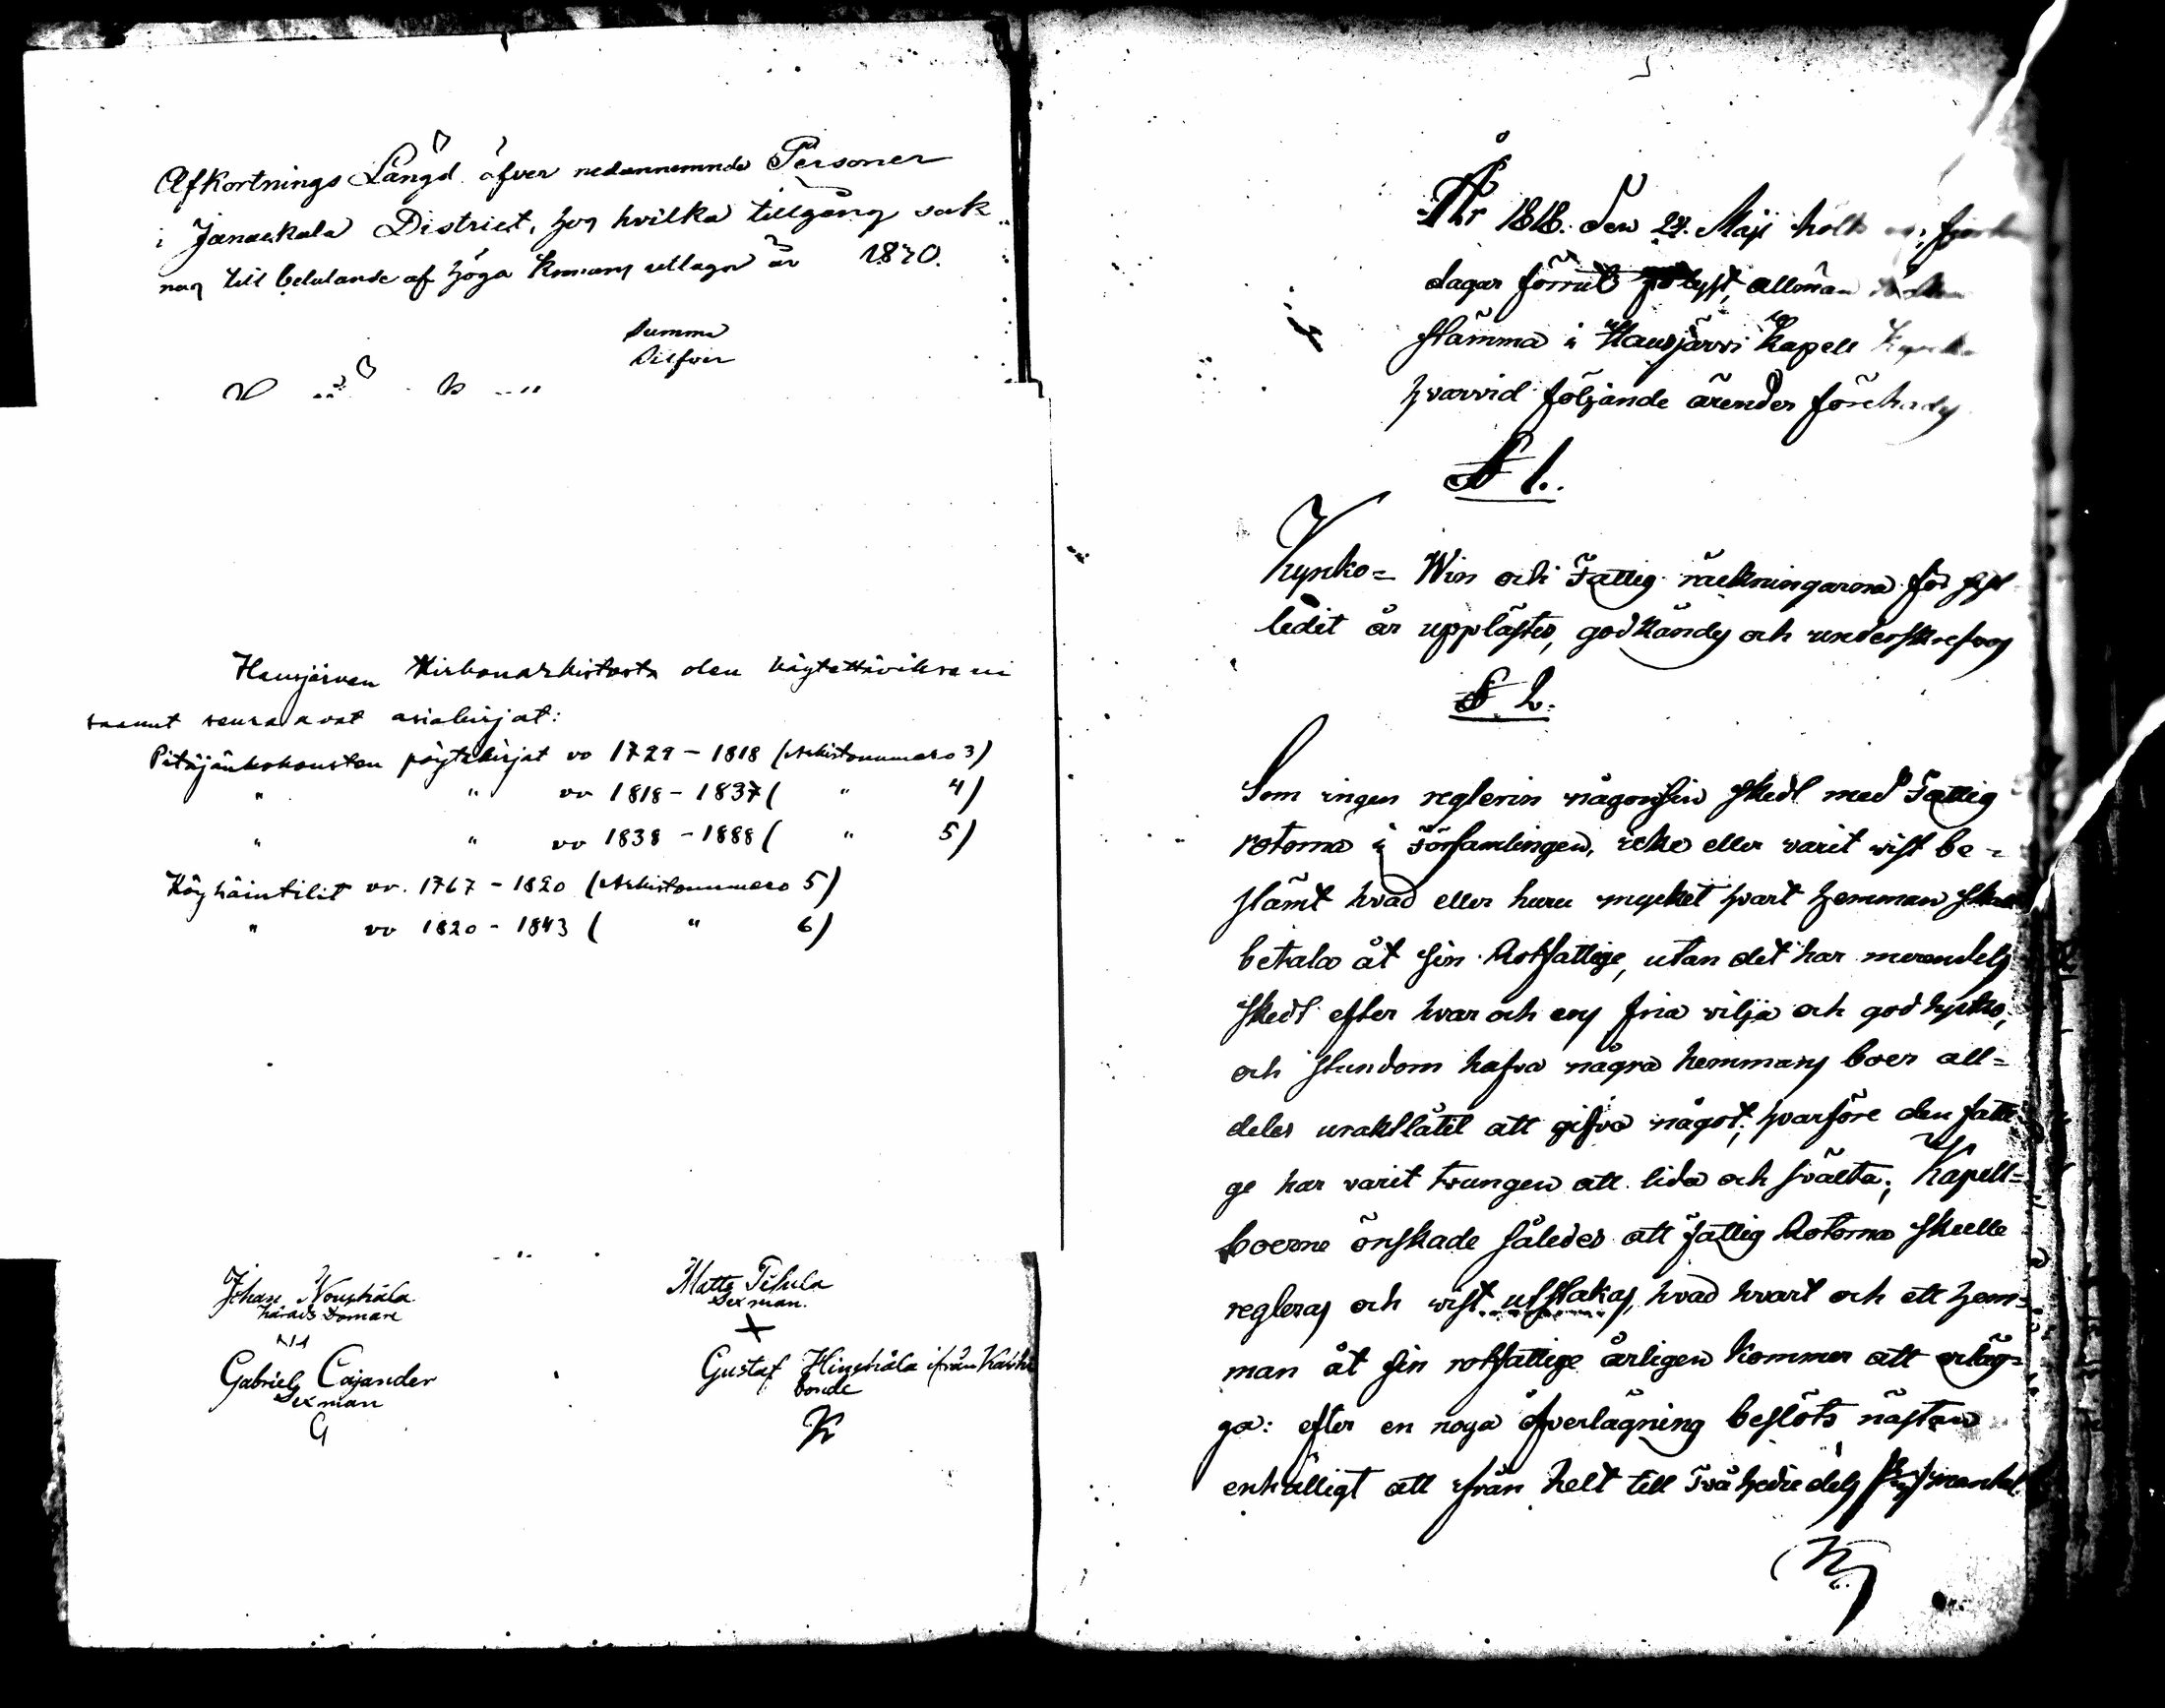 Afkortnings Längd öfver nedannemnde Personer
i Janackala District, hos hvilka tillgång sak
nas till betalande af höga Kronans utlagor år 1820.
Summa
Silfver
Hausjärven Kirkonarkistosta olen käytettävikseni
saanut seuraavat asiakirjat:
Pitäjänkokousten pöytäkirjat vv 1729 - 1818 (Arkistonumero 3)
" " vv 1818 - 1837 ( " 4)
" " vv 1838 - 1888 ( " 5)
Köyhäintilit vv. 1767 - 1820 (Arkistonumero 5)
" vv 1820 - 1843 ( " 6)
Johan Nouskiala Matts Tikula
Härads Domare Sexman.
Gabriels Cajander Gustaf Hinskiala ifrån Karhi
Sexman bonde
År 1818. den 24. Maji hölts
dagar förrut pålyst, allmän
stämma i Hausjärvi Kapell Kyrka
hvarvid följande ärender förehades
§ 1.
Kyrko= Win och Fattig räckningarna för sist
ledit år upplästes, godkändes och underskrefvos
§ 2.
Som ingen reglerin någonsin skedt med Fattig
rotorna i Församlingen, icke eller varit wist be-
stämt hvad eller huru mycket hvart hemman skall
betala åt sin Rotfattige, utan det har merendels
skedt efter hvar och ens fria vilja och godtycko,
och stundom hafva några hemmans boer all=
deles uraktlåtit att gifva något; hvarföre den fatti
ge har varit twungen att lida och svälta; Kapell=
boerne önskade således att fattig Rotorna skulle
regleras och wist utstakas, hvad hvart och ett hem=
man åt sin rotfattige årligen kommer att erläg=
ga: efter en noga öfverlägning beslöts nästan
enhälligt att ifrån helt till två tredie dels mantal